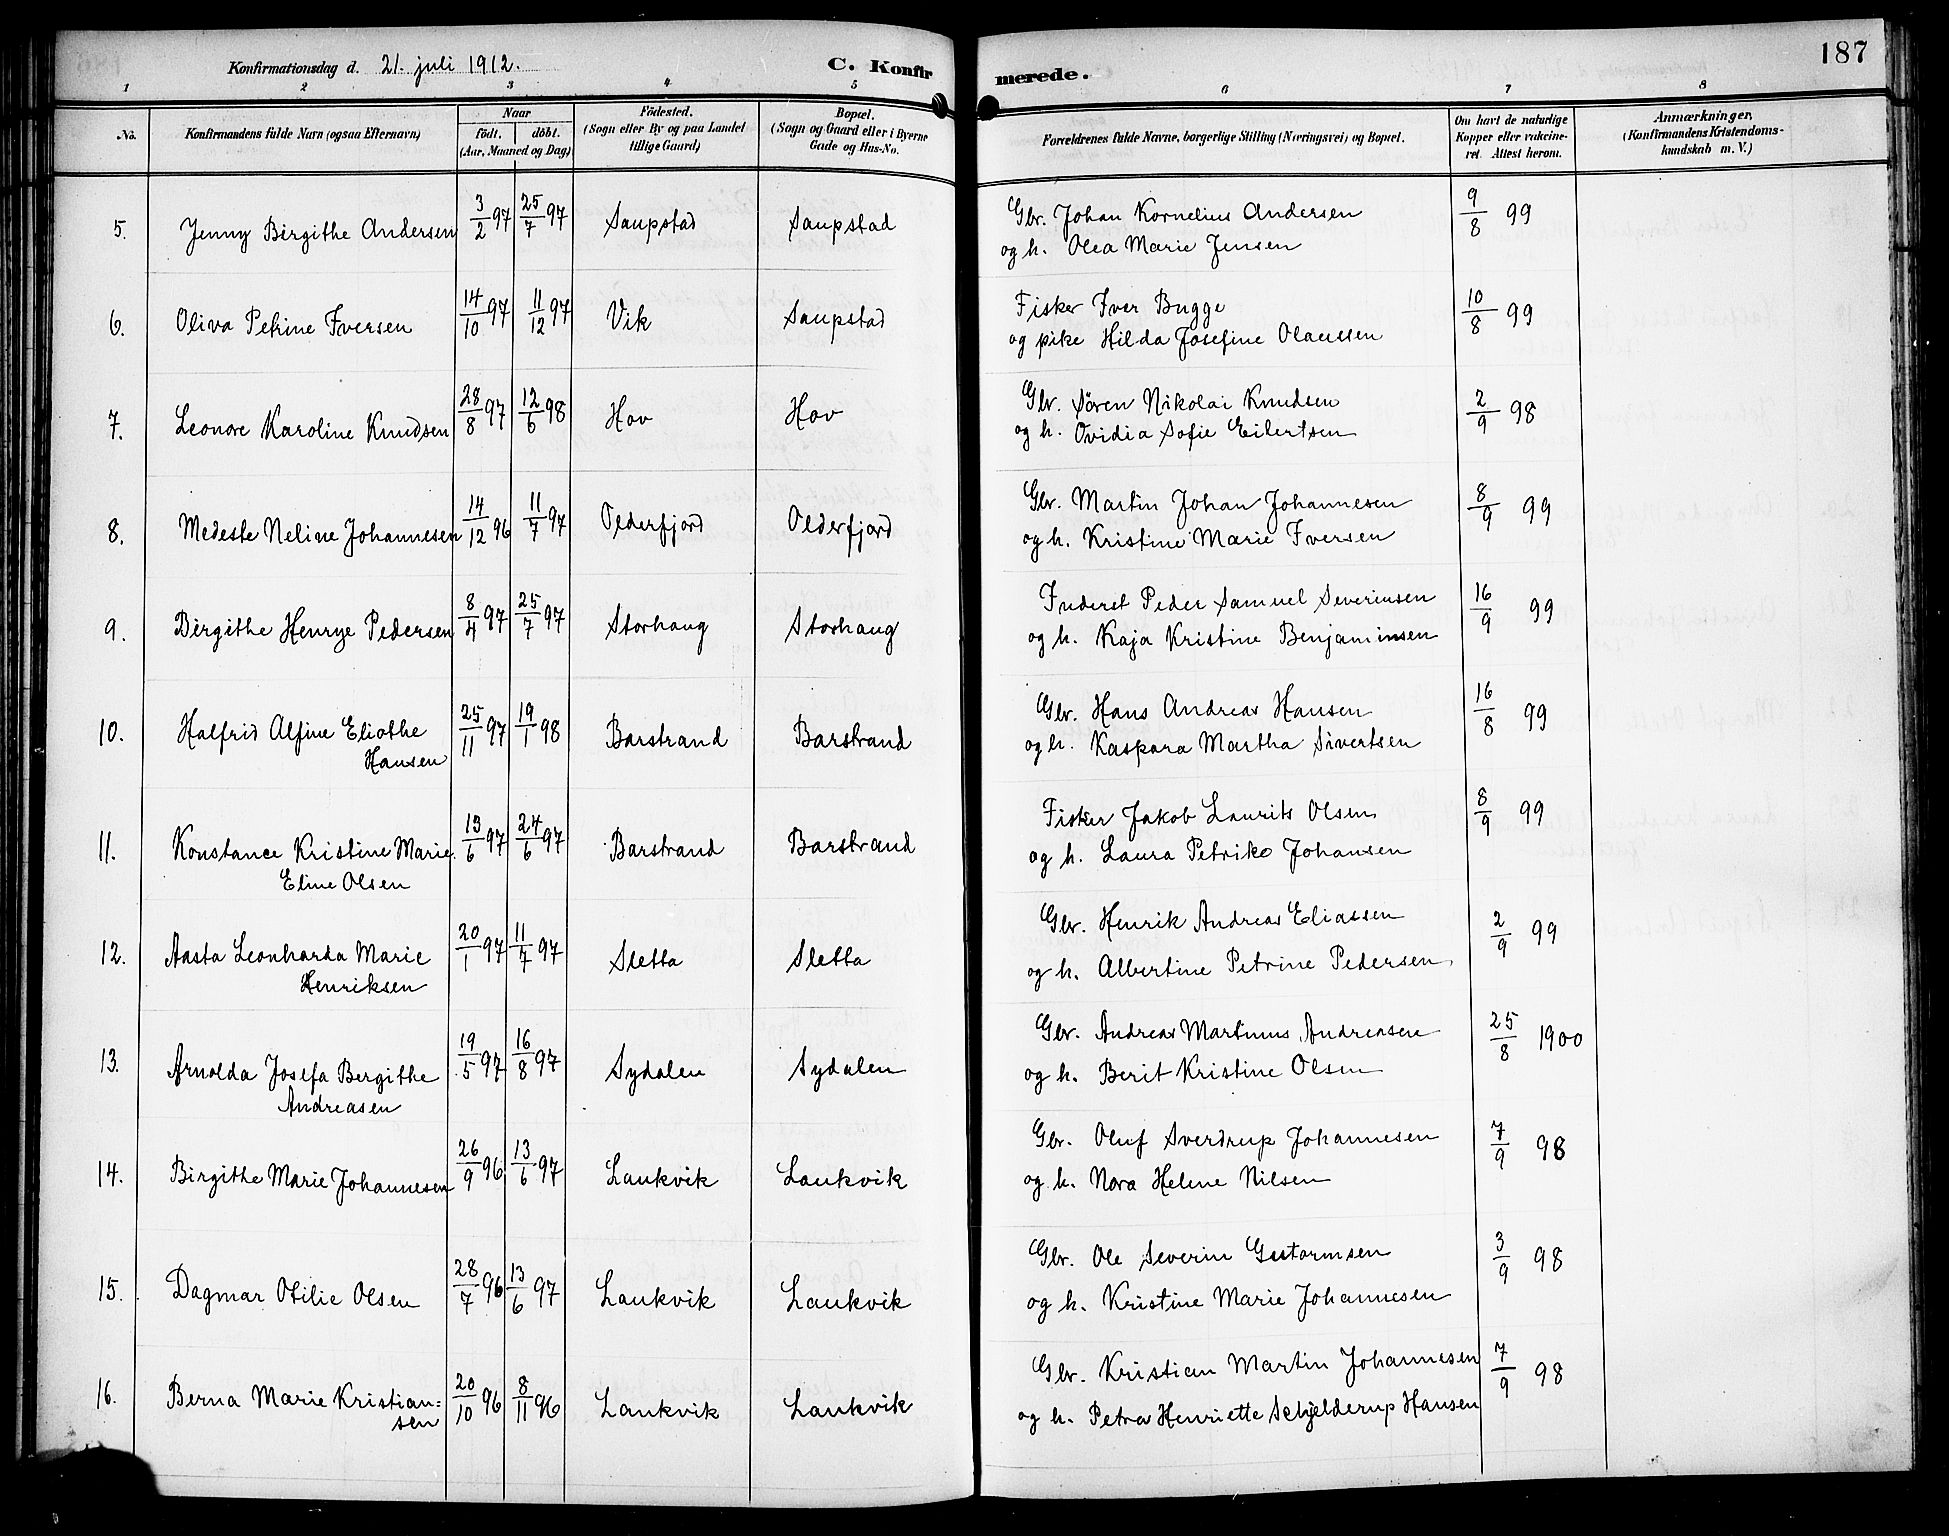 187
Konfirmationsdag d. 21. juli 1912.
C. Konfirmerede.
1 2 3 4 5 6 7 8
No.
Konfirmandens fulde Navn (ogsaa Efternavn)
Naar
födt. döbt.
(Aar, Maaned og Dag)
Födested.
(Sogn eller By og paa Landet
tillige Gaard)
Bopæl.
(Sogn og Gaard eller i Byerne
Gade og Hus-No.
Forældrenes fulde Navne, borgerlige Stilling (Næringsvei) og Bopæl.
Om havt de naturlige
Kopper eller vakcine-
ret. Attest herom.
Anmærkninger,
(Konfirmandens Kristendoms-
kundskab m. V.)
5. Jenny Birgithe Andersen 3/2 97 25/7 97 Saupstad Saupstad Gbr. Johan Kornelius Andersen 9/8 99
og h. Olea Marie Jensen
6. Oliva Petrine Iversen 14/10 97 11/12 97 Vik Saupstad Fisker Iver Bugge 10/8 99
og pike Hilda Josefine Olaussen
7. Leonore Karoline Knudsen 28/8 97 12/6 98 Hov Hov Gbr. Sören Nikolai Knudsen 2/9 98
og h. Ovidia Sofie Eilertsen
8. Medeste Neline Johannesen 14/12 96 11/7 97 Olderfjord Olderfjord Gbr. Martin Johan Johannesen 8/9 99
og h. Kristine Marie Iversen
9. Birgithe Henrye Pedersen 8/4 97 25/7 97 Storhaug Storhaug Inderst Peder Samuel Severinsen 16/9 99
og h. Kaja Kristine Benjaminsen
10. Halfrid Alfine Eliothe 25/11 97 19/1 98 Barstrand Barstrand Gbr. Hans Andreas Hansen 16/8 99
Hansen og h. Kaspara Martha Sivertsen
11. Konstance Kristine Marie 13/6 97 24/6 97 Barstrand Barstrand Fisker Jakob Laurits Olsen 8/9 99
Eline Olsen og h. Laura Petrike Johansen
12. Aasta Leonharda Marie 20/1 97 11/7 97 Sletta Sletta Gbr. Henrik Andreas Eliassen 2/9 99
Henriksen og h. Albertine Petrine Pedersen
13. Arnolda Josefa Bergithe 19/5 97 16/8 97 Sydalen Sydalen Gbr. Andreas Martinus Andreasen 25/8 1900
Andreasen og h. Berit Kristine Olsen
14. Birgithe Marie Johannesen 26/9 96 13/6 97 Laukvik Laukvik Gbr. Oluf Sverdrup Johannesen 7/9 98
og h. Nora Helene Nilsen
15. Dagmar Otilie Olsen 28/7 96 13/6 97 Laukvik Laukvik Gbr. Ole Severin Gustormsen 3/9 98
og h. Kristine Marie Johannesen
16. Berna Marie Kristian= 20/10 96 8/11 96 Laukvik Laukvik Gbr. Kristian Martin Johannesen 7/9 98
sen og h. Petra Henriette Schjelderup Hansen